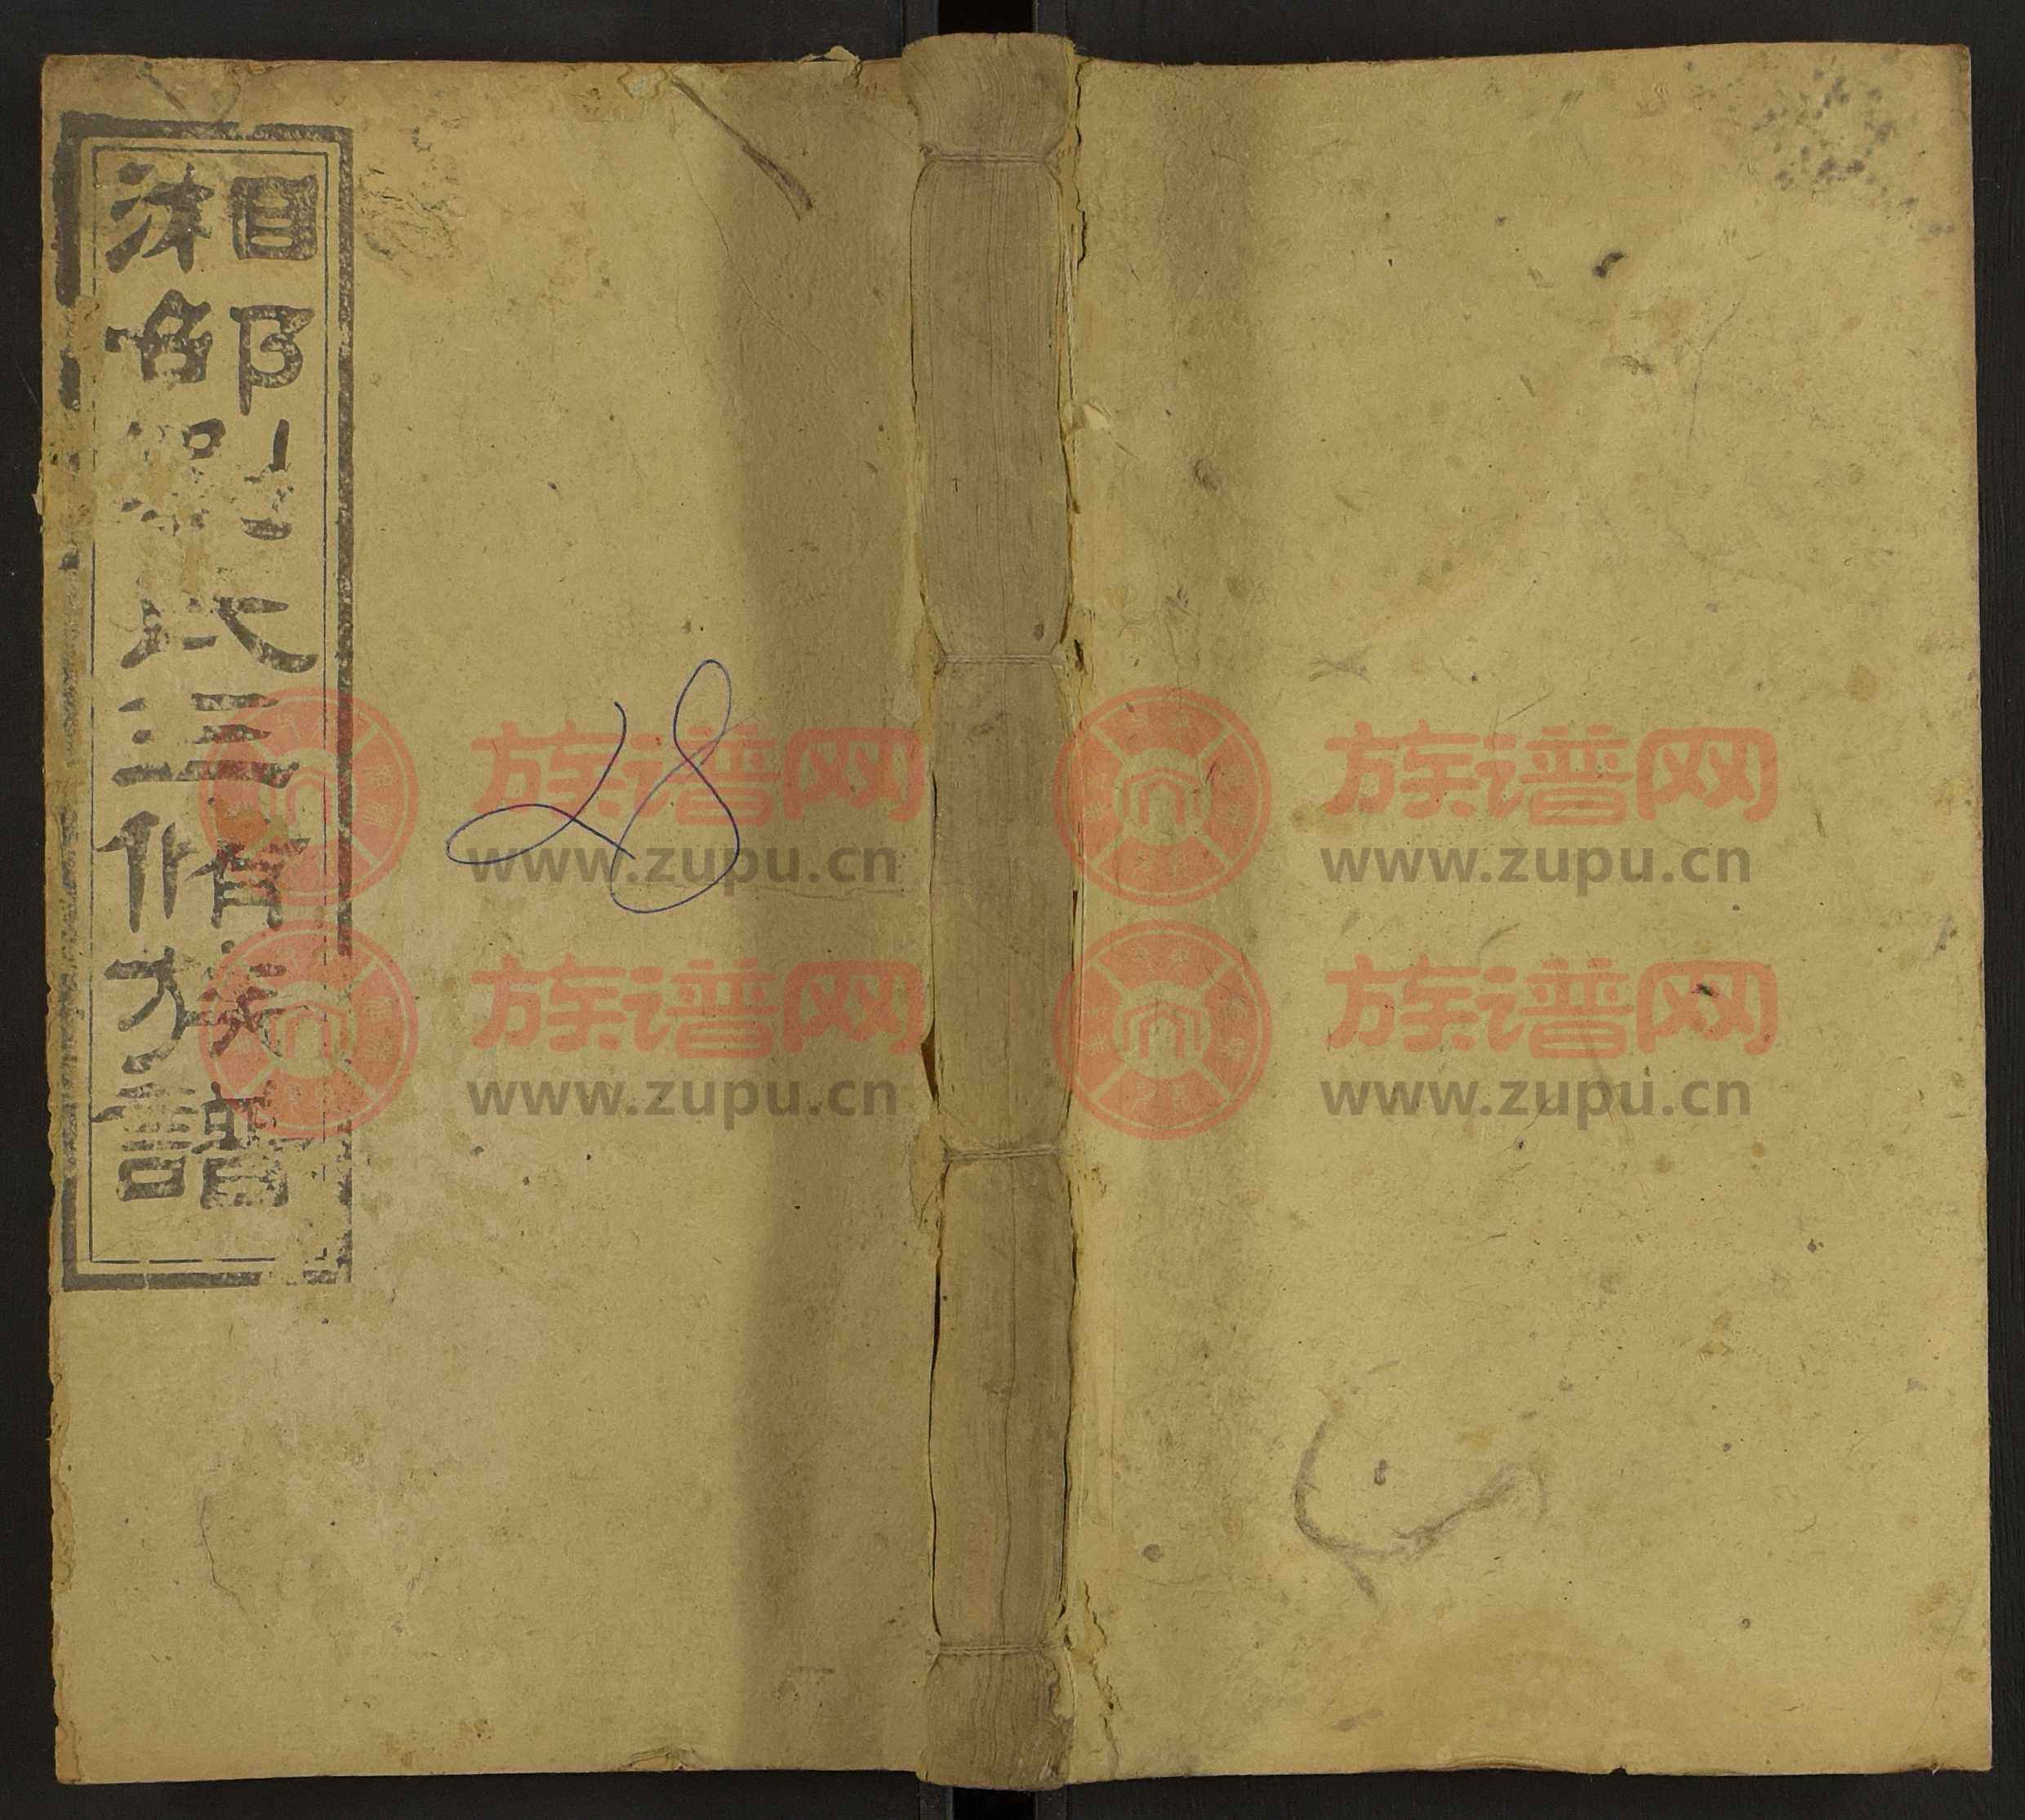 湘邵氏三修族譜
28
族谱网 族谱网
www.zupu.cn www.zupu.cn
族谱网 族谱网
www.zupu.cn www.zupu.cn